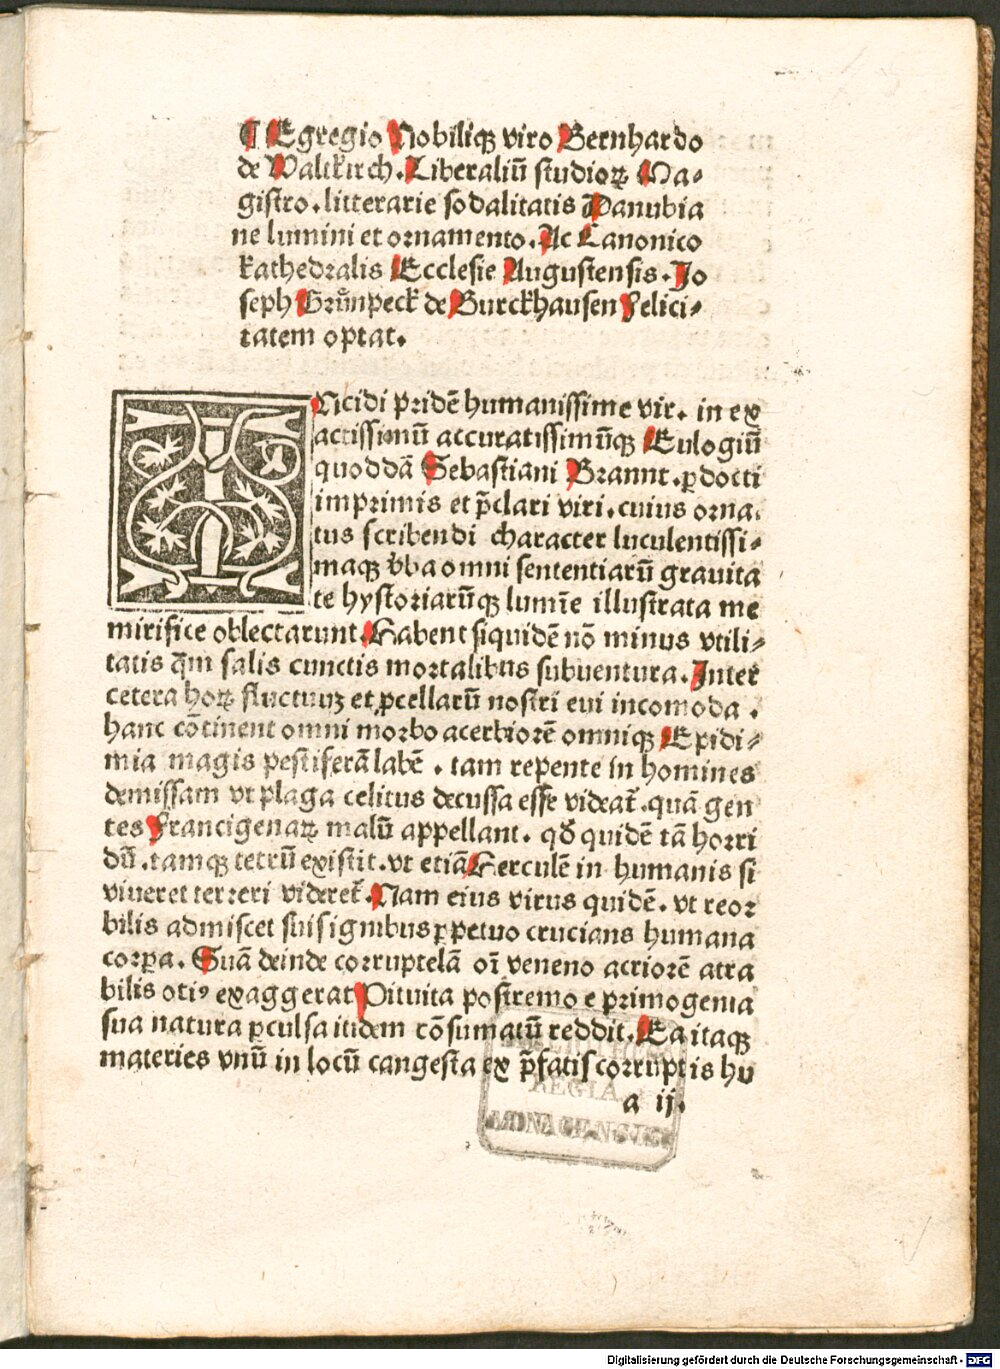 ¶ Egregio Nobiliqꝫ viro Bernhardo
de Waltkirch. Liberaliū studioꝝ Ma⸗
gistro. litterarie sodalitatis Danubia
ne lumini et ornamento. Ac Canonico
kathedralis Ecclesie Augustensis. Jo
seph Grünpeck de Burckhausen felici⸗
tatem optat.
INcidi pridē humanissime vir. in ex
actissimū accuratissimūqꝫ Eulogiū
quoddā Sebastiani Brannt. ꝑdocti
imprimis et p̄clari viri. cuius orna⸗
tus scribendi character luculentissi⸗
maqꝫ v̄ba omni sententiarū grauita
te hystoriarūqꝫ lumīe illustrata me
mirifice oblectarunt. Habent siquidē nō minus vtili⸗
tatis q̄m salis cunctis mortalibus subuentura. Inter
cetera hoꝝ fluctuuꝫ et ꝓcellarū nostri eui incomoda .
hanc cōtinent omni morbo acerbiorē omniqꝫ Epidi⸗
mia magis pestiferā labē . tam repente in homines
demissam vt plaga celitus decussa esse videat̄. quā gen
tes Francigenaꝝ malū appellant. qḋ quidē tā horri
dū . tamqꝫ tetrū existit. vt etiā Herculē in humanis si
viueret terreri videret̄. Nam eius virus quidē. vt reor
bilis admiscet suis ignibus ꝑpetuo crucians humana
corꝑa. Suā deinde corruptelā oī veneno acriorē atra
bilis otiꝰ exaggerat Pituita postremo e primogenia
sua natura ꝑculsa itidem cōsumatū reddit. Ea itaqꝫ
materies vnū in locū cangesta ex p̄fatis corruptis hu
a ij.
REGIA
MONACENSIS
Digitalisierung gefördert durch die Deutsche Forschungsgemeinschaft - DFG